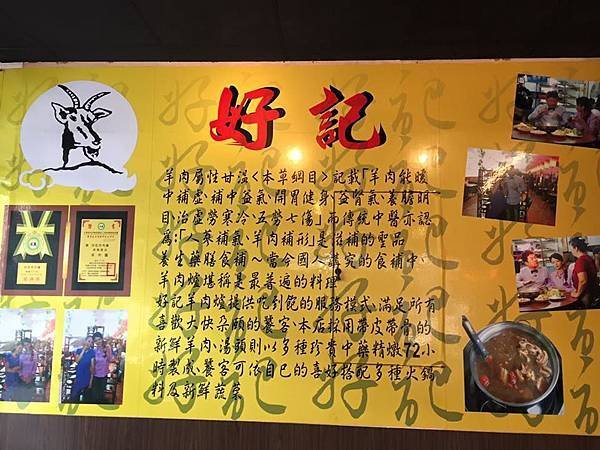 好記
羊肉屬性甘溫<本草綱目>記載「羊肉能暖
中補虛、補中益氣、開胃健身、益腎氣、養膽明
目、治虛勞寒冷、五勞七傷」而傳統中醫亦認
為:「人蔘補氣、羊肉補形」是滋補的聖品
養生藥膳食補~當今國人講究的食補中、
羊肉爐堪稱是最普遍的料理
好記羊肉爐提供吃到飽的服務模式、滿足所有
喜歡大快朵頤的饕客、本店採用帶皮帶骨的
新鮮羊肉、湯頭則以多種珍貴中藥精燉72小
時製成、饕客可依自己的喜好搭配多種火鍋
料及新鮮蔬菜